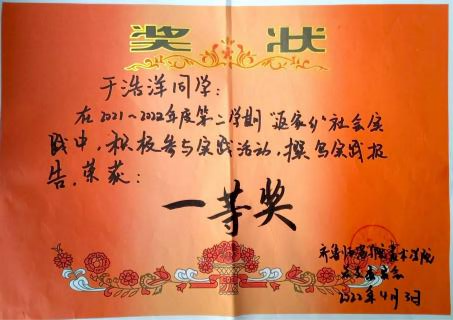 奖状
于浩洋同学：
在2021~2022年度第二学期“返家乡”社会实
践中，积极参与实践活动，撰写实践报
告，荣获：
一等奖
齐鲁师范学院美术学院
委员会
2022年4月3日